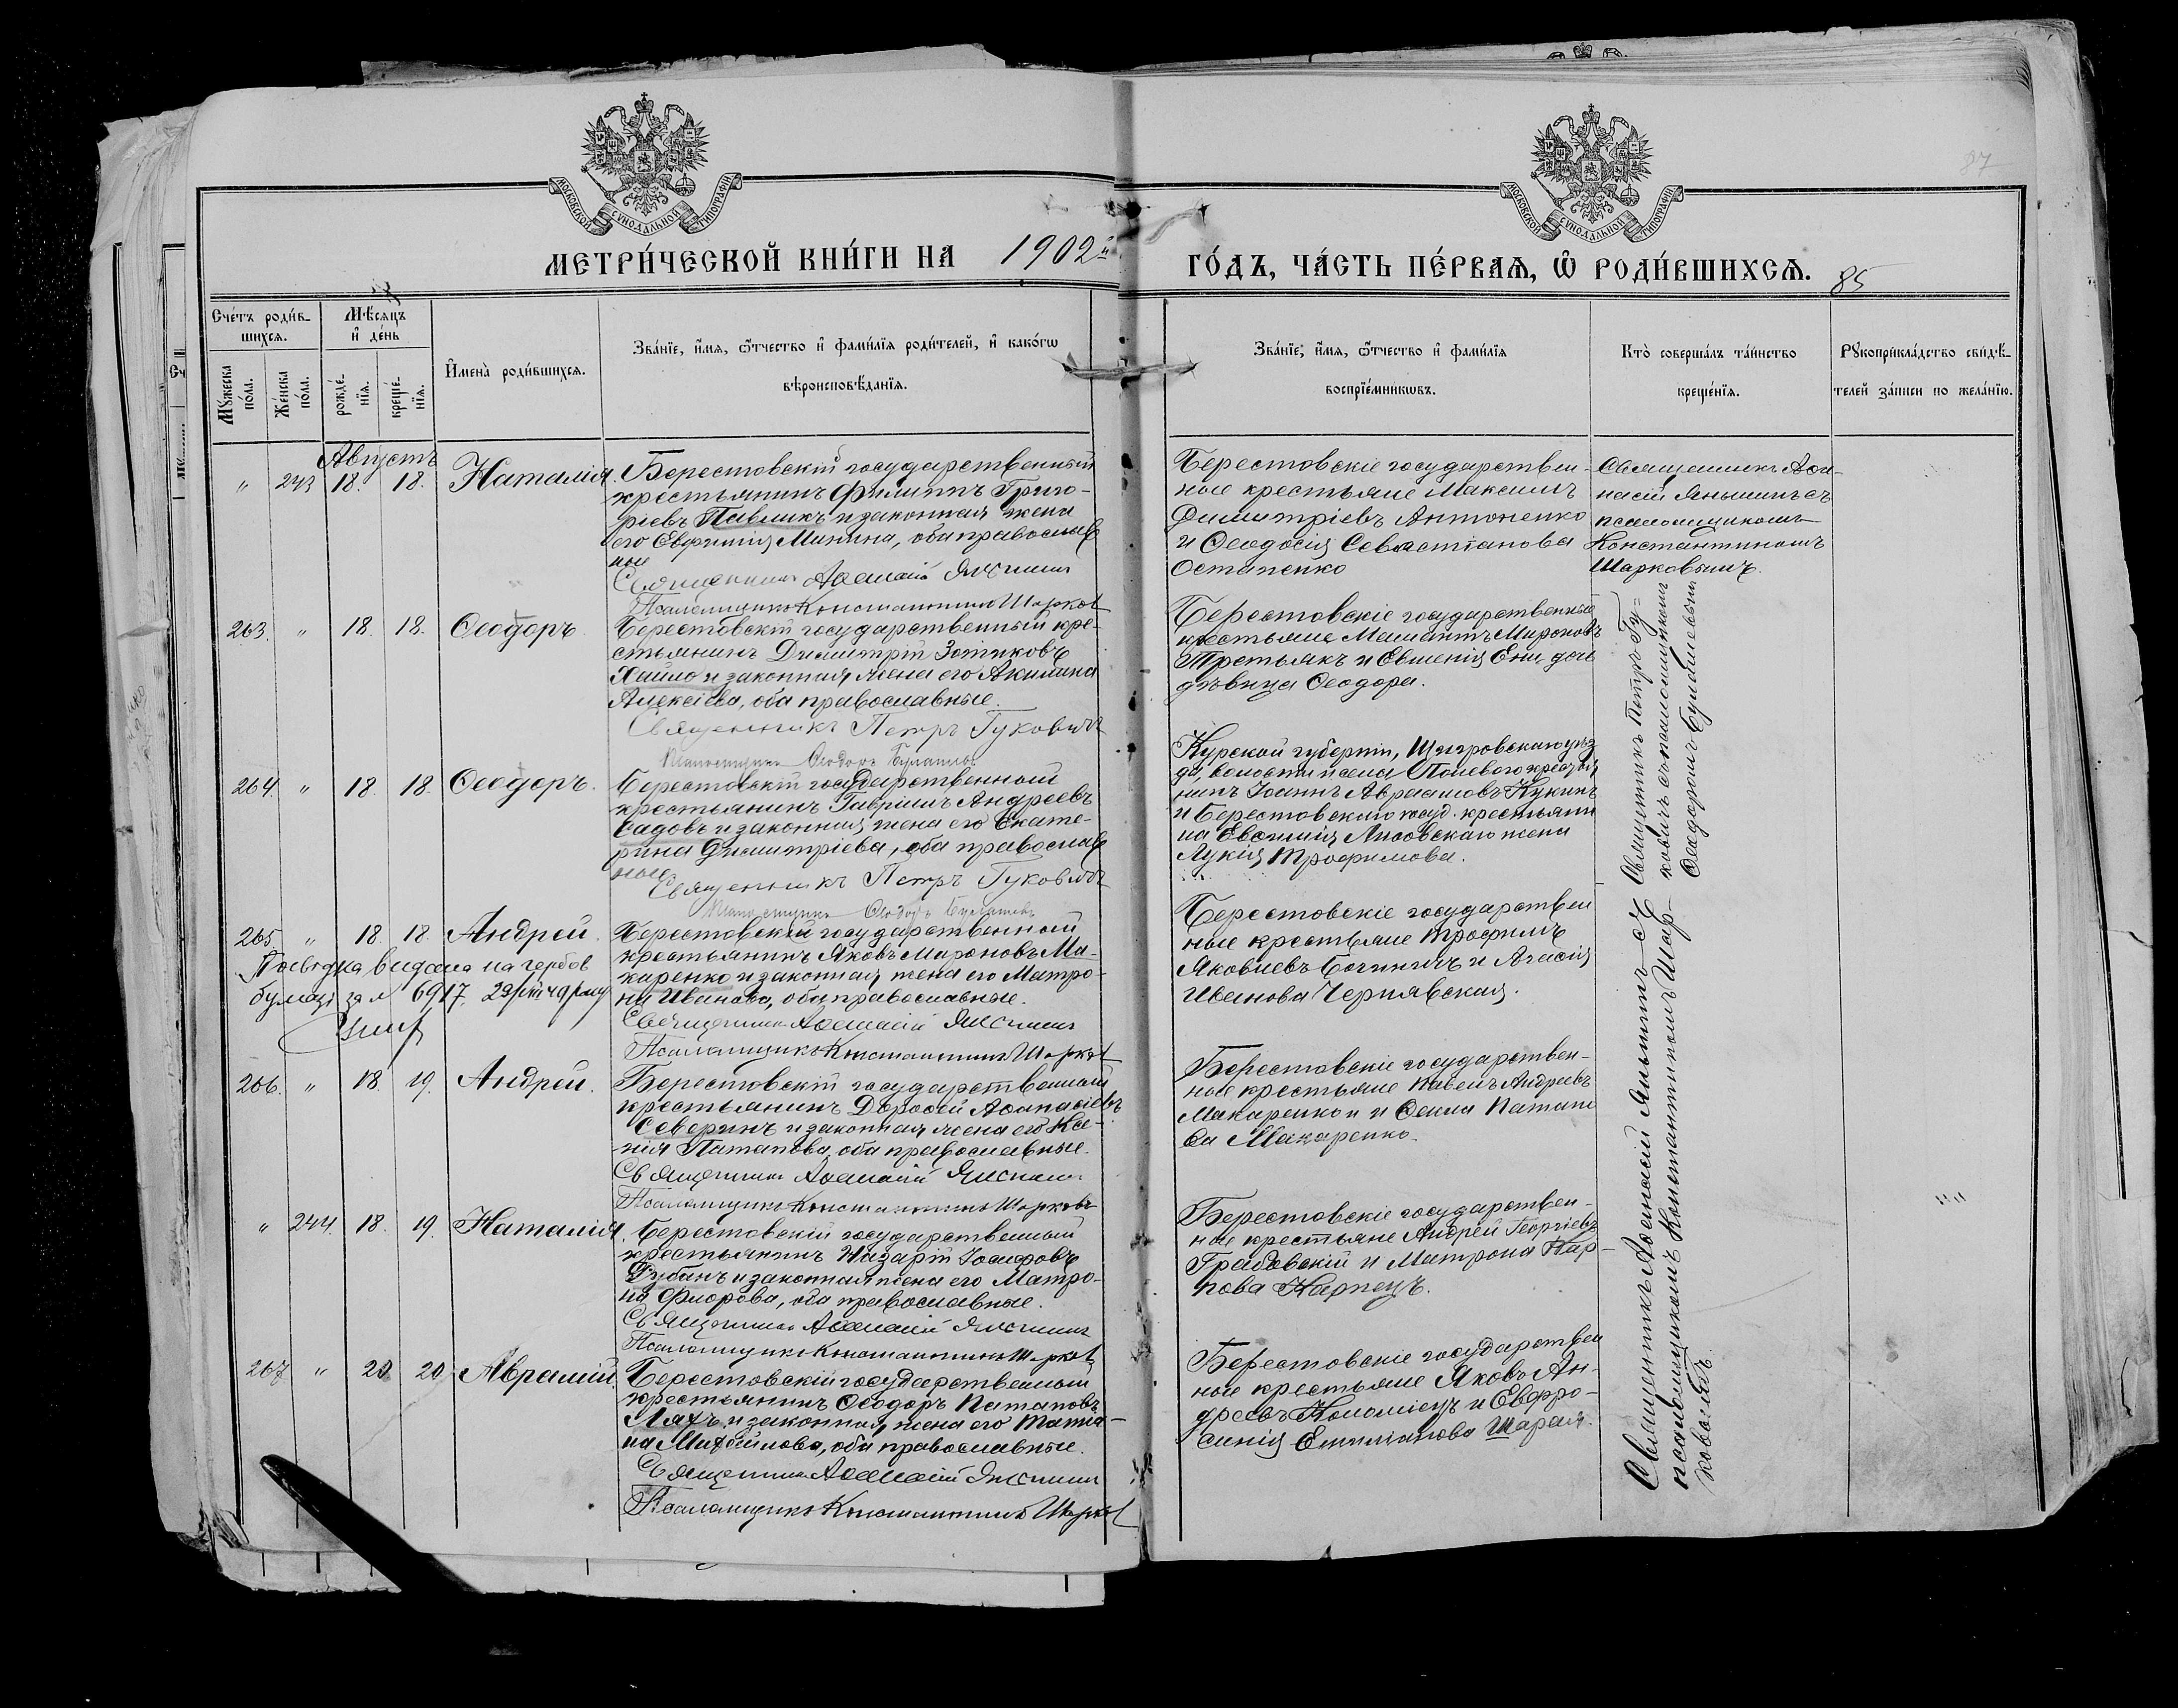 87
МОСКОВСКОЙ СѴНОДАЛЬНОЙ ТИПОГРАФІИ
МОСКОВСКОЙ СѴНОДАЛЬНОЙ ТИПОГРАФІИ
МЕТРИ́ЧЕСКОЙ КНИ́ГИ НА 1902й
ГО́ДЪ, ЧА́СТЬ ПЕ́РВАѦ, Ѡ҆ РОДИ́ВШИХСѦ. 85
Сче́тъ роди́в-
шихсѧ.
Мѣ́сѧцъ
и҆ де́нь
Мꙋ́жеска
по́ла.
Же́нска
по́ла.
рожде́-
нїѧ.
креще́-
нїѧ.
И҆мена̀ роди́вшихсѧ.
Зва́нїе, и҆́мѧ, ѻ҆́тчество и҆ фами́лїѧ роди́телей, и҆ како́гѡ
вѣроисповѣ́данїѧ.
Зва́нїе, и҆́мѧ, ѻ҆́тчество и҆ фами́лїѧ
воспрїе́мникѡвъ.
Кто̀ соверша́лъ та́инство
креще́нїѧ.
Рꙋкоприкла́дство свидѣ́-
телей за́писи по жела́нїю.
Августъ
" 243 18. 18. Наталія.
Берестовскій государственный
крестьянинъ Филиппъ Григо-
ріевъ Павликъ и законная жена
его Евфимія Минина, оба православ
ные
Священникъ Афанасій Яньшинъ
Псаломщикъ Константинъ Шарков
Берестовскіе государствен-
ные крестьяне Максимъ
Димитріевъ Антоненко
и Ѳеодосія Севастіанова
Остапенко
Священникъ Аѳа-
насій Яньшинъ съ
псаломщикомъ
Константиномъ
Шарковымъ.
263. " 18. 18. Ѳеодоръ.
Берестовскій государственный кре-
стьянинъ Димитрій Зотиковъ
Хайло и законная жена его Акилина
Алексіева, оба православные.
Священникъ Петръ Гуковичъ
Псаломщикъ Ѳеодоръ
Берестовскіе государственные
крестьяне Мироновъ
Третьякъ и Евгенія дочь
дѣвица Ѳеодора.
Священникъ Петръ Гу=
ковичъ съ псаломщикомъ
Ѳеодоромъ
264. " 18. 18. Ѳеодоръ.
Берестовскій государственный
крестьянинъ Гавріилъ Андреевъ
Садовъ и законная жена его Екате-
рина Димитріева, оба православ
ные
Священникъ Петръ Гуковичъ
Псаломщикъ Ѳеодоръ
Курской губерніи, Щигровскаго уѣз
да, волости и села Полеваго крестья
нинъ Іоаннъ Авраамовъ Кукинъ
и Берестовскаго госуд. крестьяни
на Евѳимія Лисовскаго жена
Лукія Трофимова.
265. " 18. 18. Андрей.
Берестовскій государственный
крестьянинъ Яковъ Мироновъ Ма-
каренко и законная жена его Матро-
на Иванова, оба православные.
Священникъ Афанасій Яньшинъ
Псаломщикъ Константинъ Шарков
видана на гербов
бумазі за № 6917. 29
Берестовскіе государствен
ные крестьяне Трофимъ
Яковлевъ и Агафія
Иванова Чернявская.
266. " 18. 19. Андрей.
Берестовскій государственный
крестьянинъ Дороѳей Аѳанасіевъ
Северинъ и законная жена его Ксе-
нія Патапова, оба православные.
Священникъ Афанасій Яньшинъ
Псаломщикъ Константинъ Шарковъ
Берестовскіе государствен-
ные крестьяне Павелъ Андреевъ
Макаренко и Ѳекла Патапо
ва Макаренко.
" 244. 18. 19. Наталія.
Берестовскій государственный
крестьянинъ Назарій Іосифовъ
Дубанъ и законная жена его Матро-
на Флорова, оба православные.
Священникъ Афанасій Яньшинъ
Псаломщикъ Константинъ Шарков
Берестовскіе государствен-
ные крестьяне Андрей Георгіевъ
Грабовскій и Матрона Кар-
пова Карпецъ.
267. " 20. 20. Аврамій.
Берестовскій государственный
крестьянинъ Ѳеодоръ Патаповъ
Ляхъ и законная жена его Татіа-
на Михайлова, оба православные.
Священникъ Афанасій Яньшинъ
Псаломщикъ Константинъ Шарков
Берестовскіе государствен
ные крестьяне Яковъ Ан-
дреевъ Коломіецъ и Евфро-
синія Емиліанова Шарай.
Священникъ Аѳанасій Яньшинъ съ
псаломщикомъ Константиномъ Шар-
ковымъ.